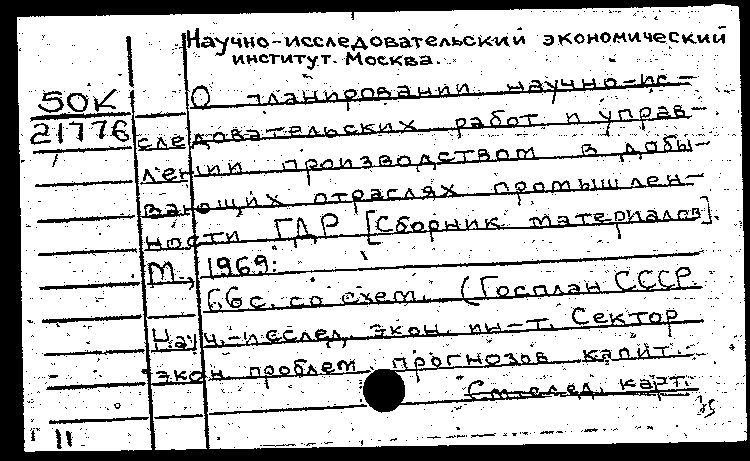 Научно-исследовательский экономический
институт. Москва.
50К
21776
О планировании научно-ис-
следовательских работ и управ-
лении производством в добы-
вающих отраслях промышлен-
ности ГДР [Сборник материалов].
М., 1969.
66 с. со схем. (Госплан СССР.
Науч.-исслед. экон. ин-т. Сектор
экон проблем прогнозов капит.
См. след. карт.
11